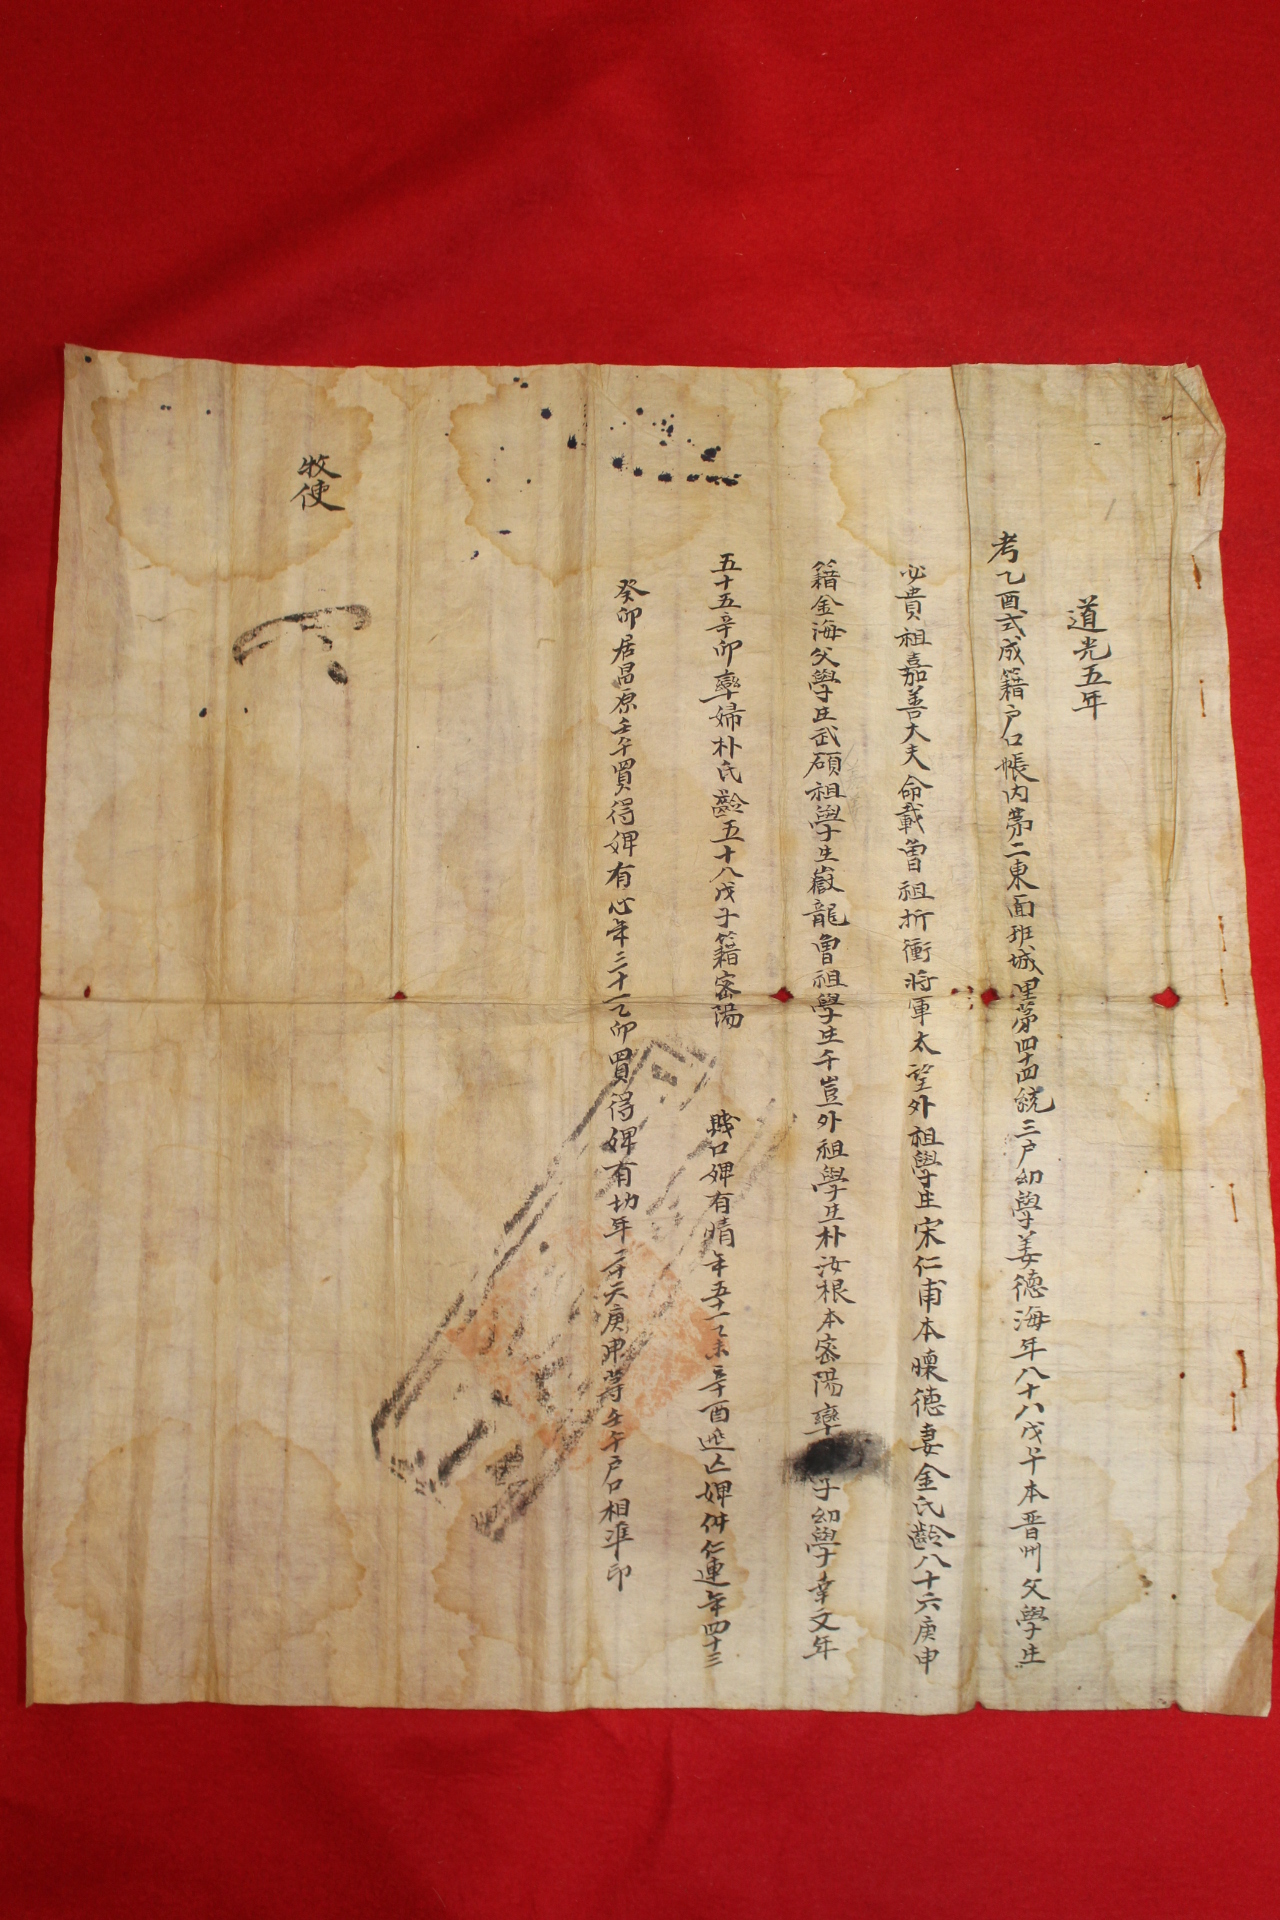 道光五年
考乙酉式成籍户口帳内第二東面班城里第四十四統三户幼學姜德海年八十八戊午本晋州父學生
必貴祖嘉善大夫命載曾祖折衝將軍太望外祖學生宋仁甫本懷德妻金氏齡八十六庚申
籍金海父學生武碩祖學生嶽龍曾祖學生千豈外祖學生朴汝根本密陽率子幼學幸文年
五十五辛卯率婦朴氏齡五十八戊子籍密陽 賤口婢有晴年五十一乙未辛酉逃亡婢件仁連年四十三
癸卯居昌原壬午買得婢有心年三十一乙卯買得婢有切年二十六庚申等壬午户口相準印
牧使